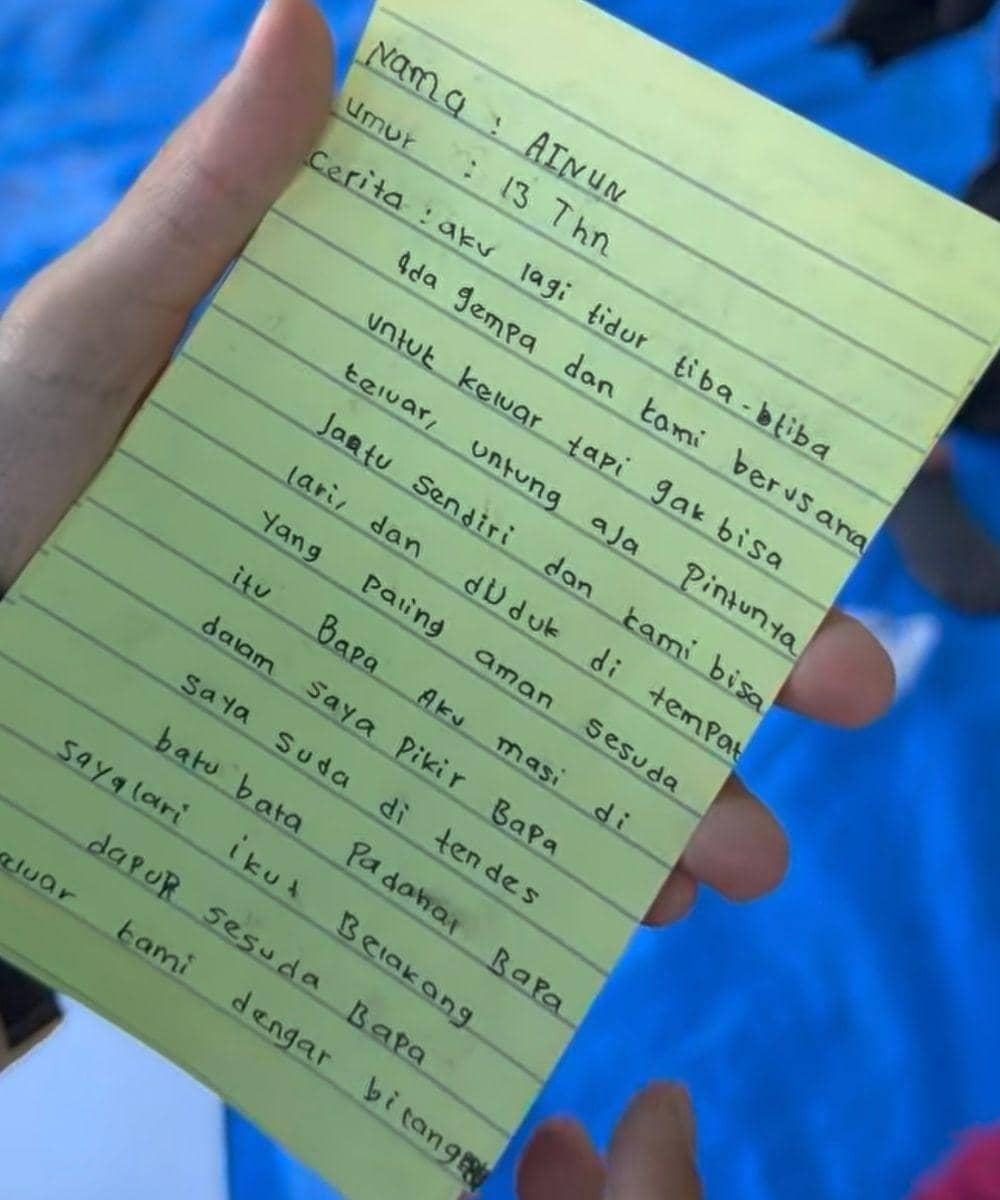 Nama : AINUN
umur : 13 Thn
Cerita : aku lagi tidur tiba-btiba
Ada gempa dan kami berusaha
untuk keluar tapi gak bisa
keluar, untung aja pintunya
Jaatu sendiri dan kami bisa
lari, dan dUduk di tempat
yang paling aman sesuda
itu Bapa Aku masi di
dalam saya pikir Bapa
saya suda di tendes
batu bata Padahal Bapa
saya lari ikut Belakang
dapuR sesuda Bapa
eluar kami dengar